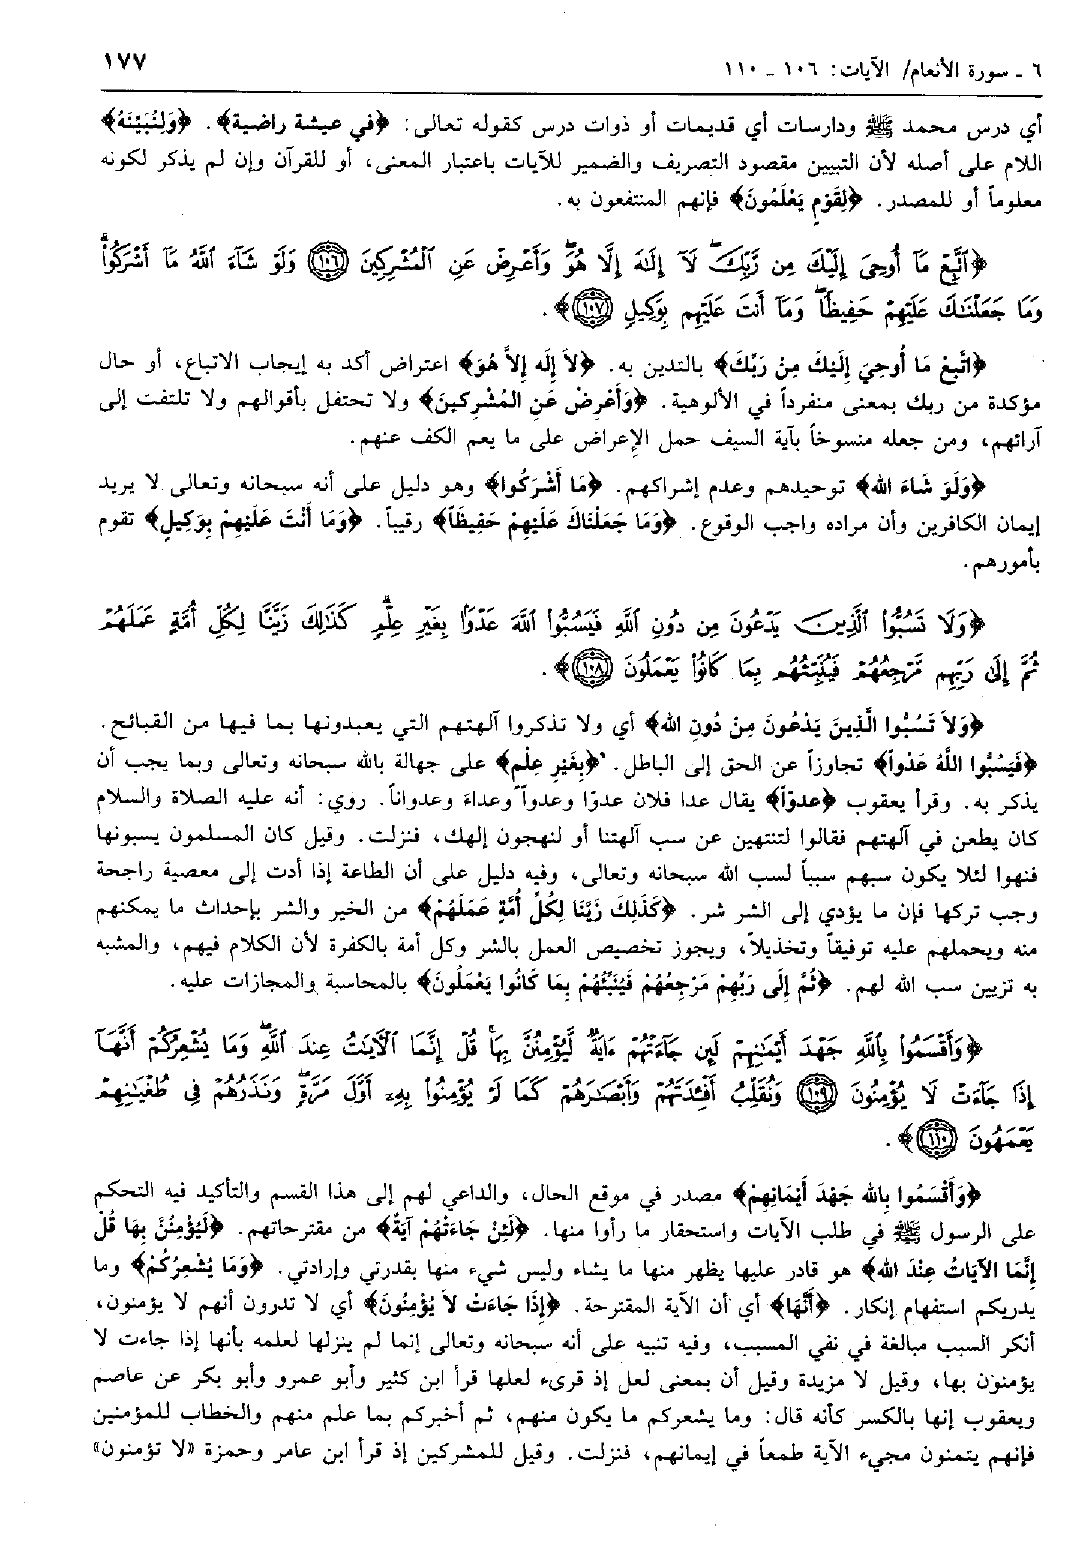 ٦ - سورة الأنعام/ الآيات: ١٠٦ - ١١٠
١٧٧
أي درس محمد ﷺ ودارسات أي قديمات أو ذوات درس كقوله تعالى: ﴿في عيشة راضية﴾. ﴿وَلِنُبَيِّنَهُ﴾
اللام على أصله لأن التبيين مقصود التصريف والضمير للآيات باعتبار المعنى، أو للقرآن وإن لم يذكر لكونه
معلوماً أو للمصدر. ﴿لِقَوْمٍ يَعْلَمُونَ﴾ فإنهم المنتفعون به.
﴿ٱتَّبِعْ مَآ أُوحِىَ إِلَيْكَ مِن رَّبِّكَ لَآ إِلَـٰهَ إِلَّا هُوَ وَأَعْرِضْ عَنِ ٱلْمُشْرِكِينَ ١٠٦ وَلَوْ شَآءَ ٱللَّهُ مَآ أَشْرَكُوا۟
وَمَا جَعَلْنَـٰكَ عَلَيْهِمْ حَفِيظًا وَمَآ أَنتَ عَلَيْهِم بِوَكِيلٍ ١٠٧﴾.
﴿اتَّبِعْ مَا أُوحِيَ إِلَيْكَ مِنْ رَبِّكَ﴾ بالتدين به. ﴿لاَ إِلَه إِلاَّ هُوَ﴾ اعتراض أكد به إيجاب الاتباع، أو حال
مؤكدة من ربك بمعنى منفرداً في الألوهية. ﴿وَأَعْرِضْ عَنِ المُشْرِكِينَ﴾ ولا تحتفل بأقوالهم ولا تلتفت إلى
آرائهم، ومن جعله منسوخاً بآية السيف حمل الإعراض على ما يعم الكف عنهم.
﴿وَلَو شَاءَ الله﴾ توحيدهم وعدم إشراكهم. ﴿مَا أَشْرَكُوا﴾ وهو دليل على أنه سبحانه وتعالى لا يريد
إيمان الكافرين وأن مراده واجب الوقوع. ﴿وَمَا جَعَلْنَاكَ عَلَيْهِمْ حَفِيظَاً﴾ رقيباً. ﴿وَمَا أَنْتَ عَلَيْهِمْ بِوَكِيلٍ﴾ تقوم
بأمورهم.
﴿وَلَا تَسُبُّوا۟ ٱلَّذِينَ يَدْعُونَ مِن دُونِ ٱللَّهِ فَيَسُبُّوا۟ ٱللَّهَ عَدْوًۢا بِغَيْرِ عِلْمٍ كَذَٰلِكَ زَيَّنَّا لِكُلِّ أُمَّةٍ عَمَلَهُمْ
ثُمَّ إِلَىٰ رَبِّهِم مَّرْجِعُهُمْ فَيُنَبِّئُهُم بِمَا كَانُوا۟ يَعْمَلُونَ ١٠٨﴾.
﴿وَلاَ تَسُبُّوا الَّذِينَ يَدْعُونَ مِنْ دُونِ الله﴾ أي ولا تذكروا آلهتهم التي يعبدونها بما فيها من القبائح.
﴿فَيَسُبُّوا اللَّهَ عَدْواً﴾ تجاوزاً عن الحق إلى الباطل. ﴿بِغَيرِ عِلْمٍ﴾ على جهالة بالله سبحانه وتعالى وبما يجب أن
يذكر به. وقرأ يعقوب ﴿عدوّاً﴾ يقال عدا فلان عدوّا وعدواً وعداء وعدواناً. روي: أنه عليه الصلاة والسلام
كان يطعن في آلهتهم فقالوا لتنتهين عن سب آلهتنا أو لنهجون إلهك، فنزلت. وقيل كان المسلمون يسبونها
فنهوا لئلا يكون سبهم سبباً لسب الله سبحانه وتعالى، وفيه دليل على أن الطاعة إذا أدت إلى معصية راجحة
وجب تركها فإن ما يؤدي إلى الشر شر. ﴿كَذَلِكَ زَيَّنَّا لِكُلِّ أُمَّةٍ عَمَلَهُمْ﴾ من الخير والشر بإحداث ما يمكنهم
منه ويحملهم عليه توفيقاً وتخذيلاً، ويجوز تخصيص العمل بالشر وكل أمة بالكفرة لأن الكلام فيهم، والمشبه
به تزيين سب الله لهم. ﴿ثُمَّ إِلَى رَبِّهِمْ مَرْجِعُهُمْ فَيُنَبِّئُهُمْ بِمَا كَانُوا يَعْمَلُونَ﴾ بالمحاسبة والمجازات عليه.
﴿وَأَقْسَمُوا۟ بِٱللَّهِ جَهْدَ أَيْمَـٰنِهِمْ لَئِن جَآءَتْهُمْ ءَايَةٌ لَّيُؤْمِنُنَّ بِهَا قُلْ إِنَّمَا ٱلْـَٔايَـٰتُ عِندَ ٱللَّهِ وَمَا يُشْعِرُكُمْ أَنَّهَآ
إِذَا جَآءَتْ لَا يُؤْمِنُونَ ١٠٩ وَنُقَلِّبُ أَفْـِٔدَتَهُمْ وَأَبْصَـٰرَهُمْ كَمَا لَمْ يُؤْمِنُوا۟ بِهِۦٓ أَوَّلَ مَرَّةٍ وَنَذَرُهُمْ فِى طُغْيَـٰنِهِمْ
يَعْمَهُونَ ١١٠﴾.
﴿وَأَقْسَمُوا بِالله جَهْدَ أَيْمَانِهِمْ﴾ مصدر في موقع الحال، والداعي لهم إلى هذا القسم والتأكيد فيه التحكم
على الرسول ﷺ في طلب الآيات واستحقار ما رأوا منها. ﴿لَئِنْ جَاءَتْهُمْ آيَةٌ﴾ من مقترحاتهم. ﴿لَيُؤْمِنُنَّ بِهَا قُلْ
إِنَّمَا الآيَاتُ عِنْدَ الله﴾ هو قادر عليها يظهر منها ما يشاء وليس شيء منها بقدرتي وإرادتي. ﴿وَمَا يُشْعِرُكُمْ﴾ وما
يدريكم استفهام إنكار. ﴿أَنَّهَا﴾ أي أن الآية المقترحة. ﴿إِذَا جَاءَت لاَ يُؤْمِنُونَ﴾ أي لا تدرون أنهم لا يؤمنون،
أنكر السبب مبالغة في نفي المسبب، وفيه تنبيه على أنه سبحانه وتعالى إنما لم ينزلها لعلمه بأنها إذا جاءت لا
يؤمنون بها، وقيل لا مزيدة وقيل أن بمعنى لعل إذ قرىء لعلها قرأ ابن كثير وأبو عمرو وأبو بكر عن عاصم
ويعقوب إنها بالكسر كأنه قال: وما يشعركم ما يكون منهم، ثم أخبركم بما علم منهم والخطاب للمؤمنين
فإنهم يتمنون مجيء الآية طمعاً في إيمانهم، فنزلت. وقيل للمشركين إذ قرأ ابن عامر وحمزة «لا تؤمنون»